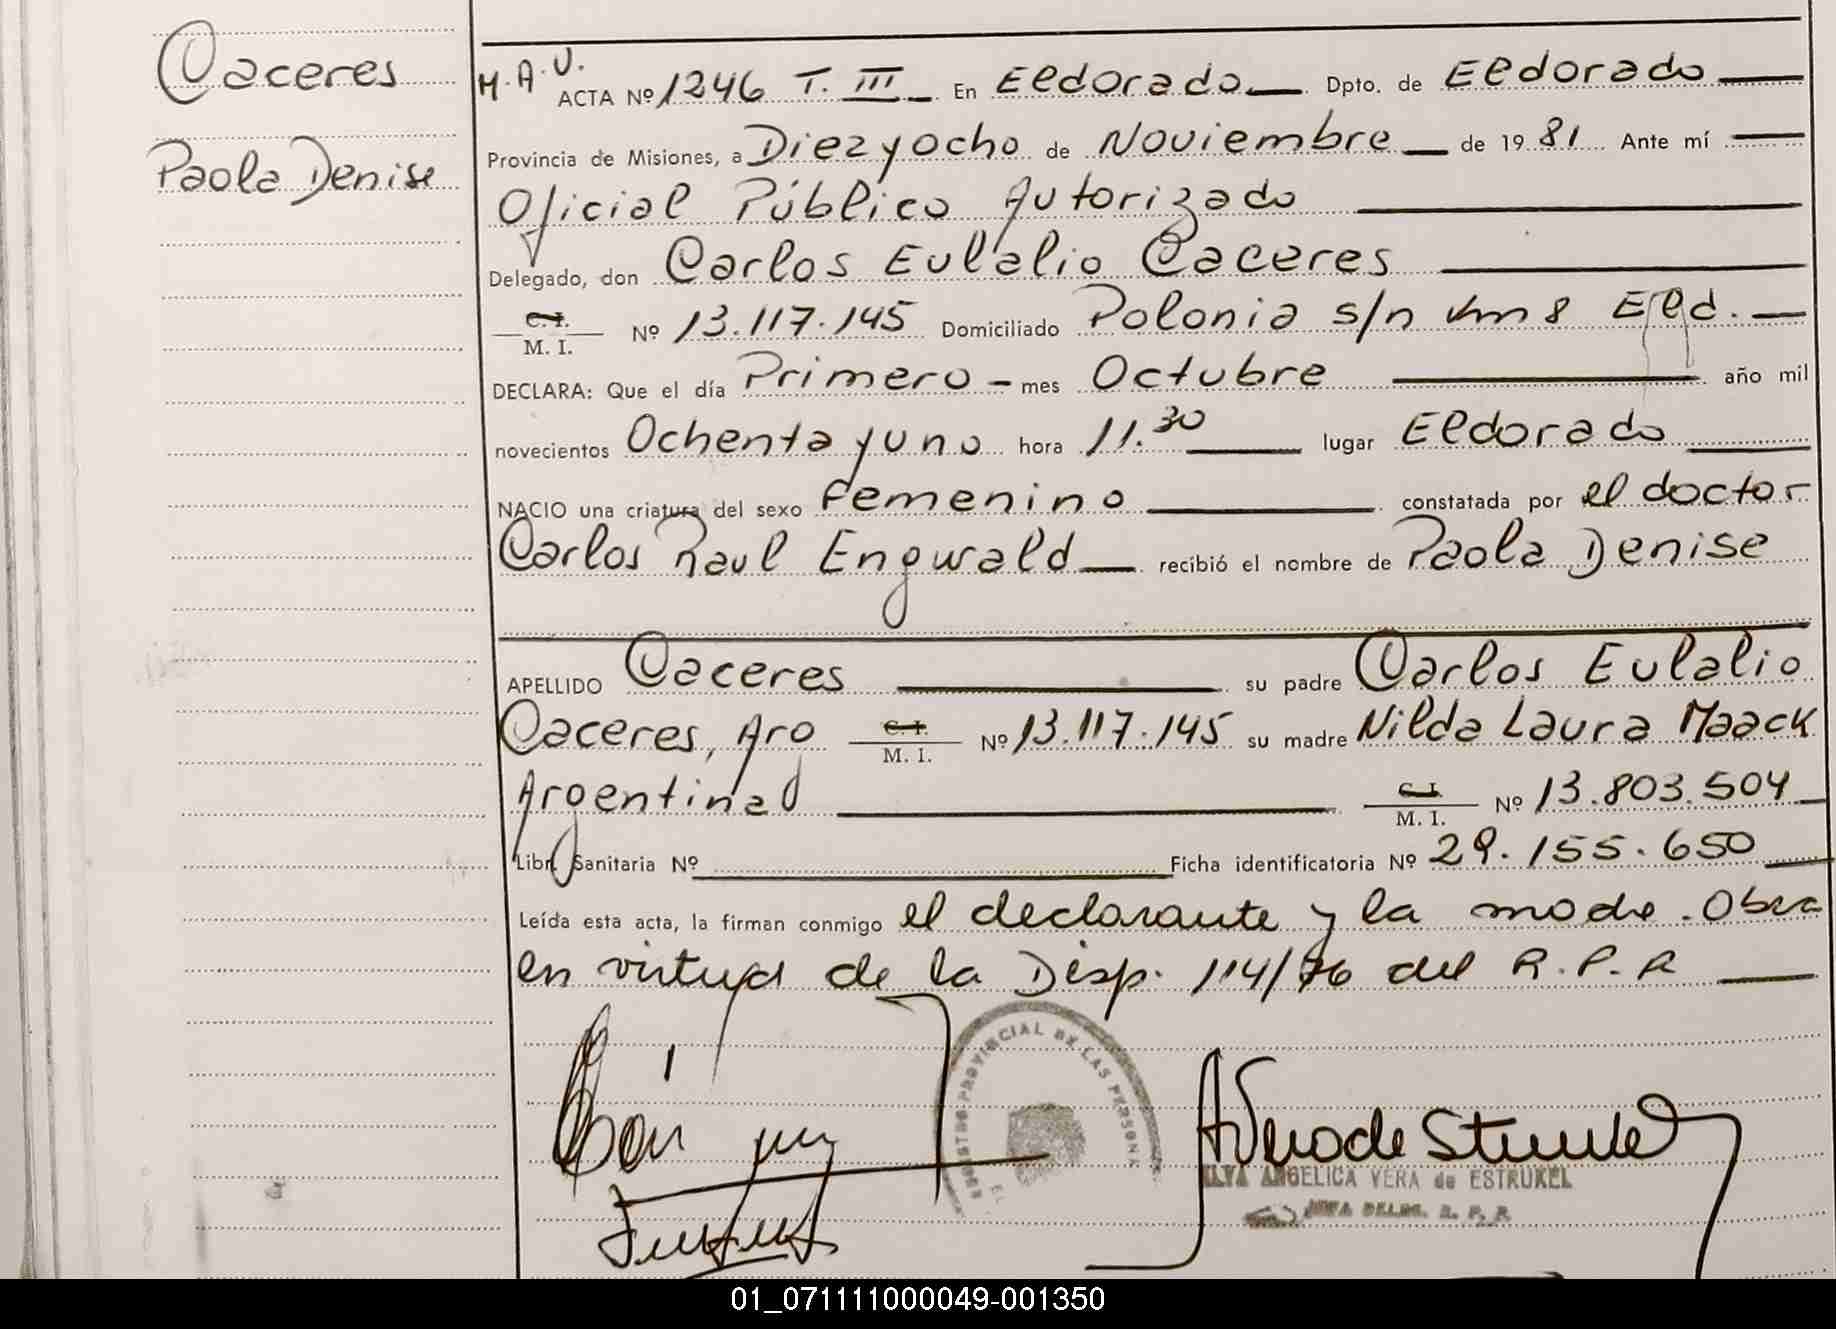 Caceres
Paola Denise
M.A.V.
ACTA Nº 1246 T. III En Eldorado Dpto. de Eldorado
Provincia de Misiones, a Diezyocho de Noviembre de 1981 Ante mí
Oficial Público Autorizado
Delegado, don Carlos Eulalio Caceres
C. I.
M. I. Nº 13.117.145 Domiciliado Polonia s/n km 8 Eld.
DECLARA: Que el día Primero - mes Octubre año mil
novecientos Ochenta y uno hora 11.30 lugar Eldorado
NACIO una criatura del sexo femenino constatada por el doctor
Carlos Raul Engwald recibió el nombre de Paola Denise
APELLIDO Caceres su padre Carlos Eulalio
Caceres, Arg C. I. M. I. Nº 13.117.145 su madre Nilda Laura Maack
Argentina C. I. M. I. Nº 13.803.504
Libr. Sanitaria Nº Ficha identificatoria Nº 29.155.650
Leída esta acta, la firman conmigo el declarante y la madre. Obra
en virtud de la Disp. 114/76 del R.P.R
REGISTRO PROVINCIAL DE LAS PERSONA
EL
ANGELICA VERA de ESTRUKEL
DELEG. R. P. P.
01_071111000049-001350